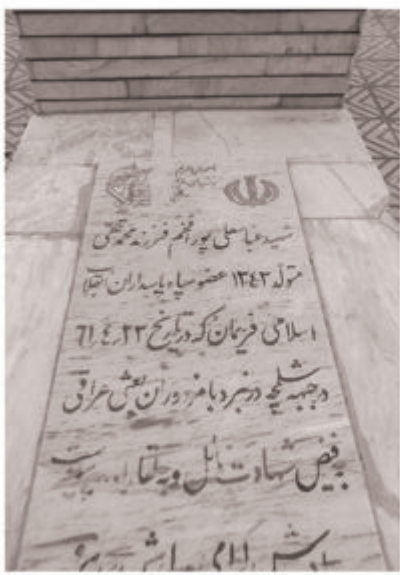 شهید عباسعلی پور افخم فرزند محمد تقی
متولد ۱۳٤۳ عضو سپاه پاسداران انقلاب
اسلامی فریمان که در تاریخ ۲۳ر٤ر٦۱
در جبهه شلمچه در نبرد با مزدوران بعثی عراقی
به فیض شهادت نائل و به لقاء پیوست
یادش گرامی